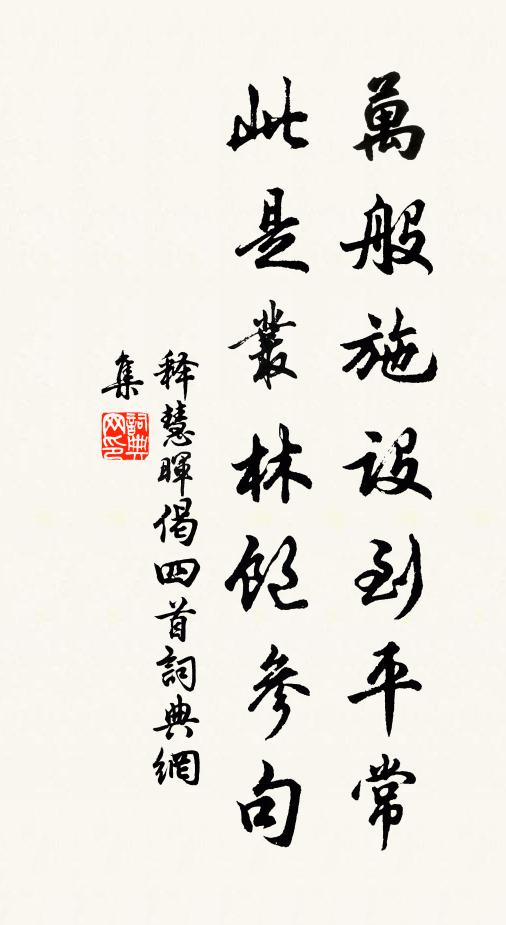 萬般施設到平常
此是叢林飽參句
释慧暉偈四首詞典網
集
詞典網印